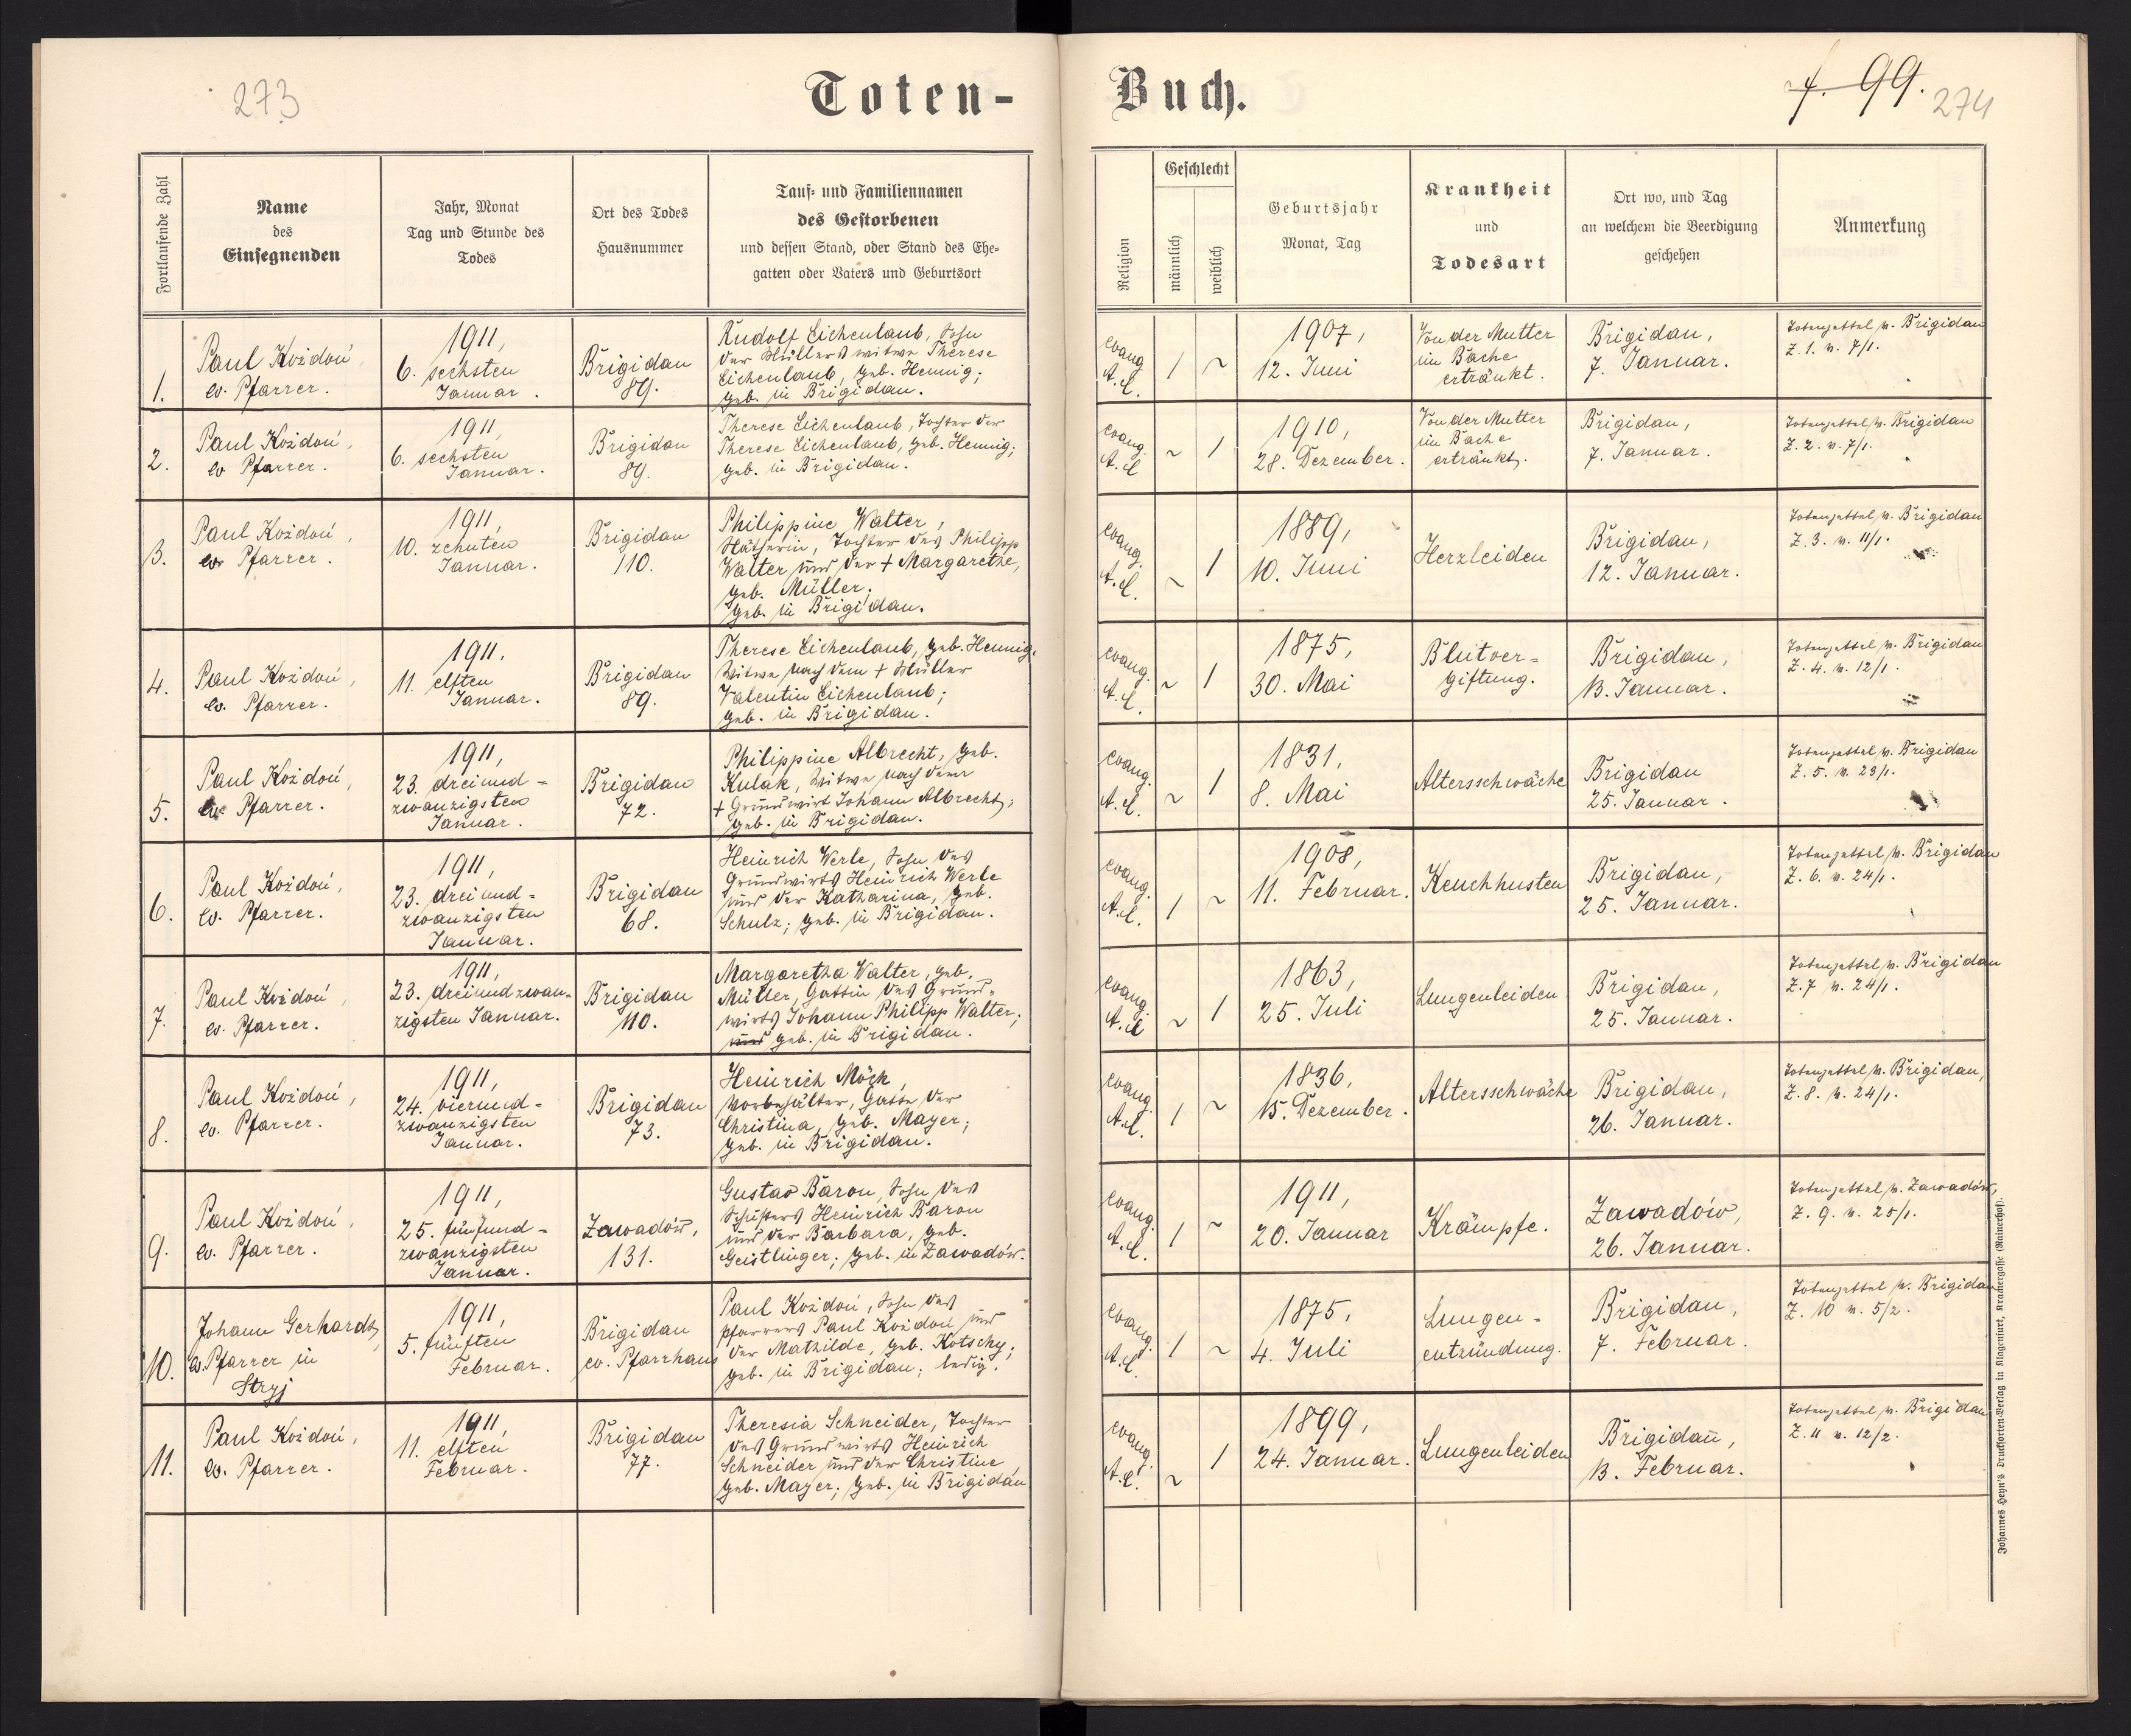 273
Toten-
Buch.
f. 99.
274
Fortlaufende Zahl
Name
des
Einsegnenden
Jahr, Monat
Tag und Stunde des
Todes
Ort des Todes
Hausnummer
Tauf- und Familiennamen
des Gestorbenen
und dessen Stand, oder Stand des Ehe-
gatten oder Vaters und Geburtsort
Religion
Geschlecht
männlich
weiblich
Geburtsjahr
Monat, Tag
Krankheit
und
Todesart
Ort wo, und Tag
an welchem die Beerdigung
geschehen
Anmerkung
1.
Paul Koždoń,
ev. Pfarrer.
1911,
6. sechsten
Januar.
Brigidau
89.
Rudolf Eichenlaub, Sohn
der Müllerswitwe Therese
Eichenlaub, geb. Hennig;
geb. in Brigidau.
evang.
A.C.
1 ~
1907,
12. Juni
Von der Mutter
im Bache
ertränkt.
Brigidau,
7. Januar.
Totenzettel v. Brigidau
Z. 1. v. 7/1.
2.
Paul Koždoń,
ev Pfarrer.
1911,
6. sechsten
Januar.
Brigidau
89.
Therese Eichenlaub, Tochter der
Therese Eichenlaub, geb. Hennig;
geb. in Brigidau.
evang.
A.C
~ 1
1910,
28. Dezember.
Von der Mutter
im Bache
ertränkt.
Brigidau,
7. Januar.
Totenzettel v. Brigidau
Z. 2. v. 7/1.
3.
Paul Koždoń,
ev Pfarrer.
1911,
10. zehnten
Januar.
Brigidau
110.
Philippine Walter,
Nätherin, Tochter des Philipp
Walter und der + Margarethe,
geb. Müller;
geb. in Brigidau.
evang.
A.C.
~ 1
1889,
10. Juni
Herzleiden
Brigidau,
12. Januar.
Totenzettel v. Brigidau
Z. 3. v. 11/1.
4.
Paul Koždoń,
ev. Pfarrer.
1911.
11. elften
Januar.
Brigidau
89.
Therese Eichenlaub, geb. Hennig,
Witwe nach dem + Müller
Valentin Eichenlaub;
geb. in Brigidau.
evang.
A.C.
~ 1
1875,
30. Mai
Blutver-
giftung.
Brigidau,
13. Januar.
Totenzettel v. Brigidau
Z. 4. v. 12/1.
5.
Paul Koždoń,
ev. Pfarrer.
1911,
23. dreiund-
zwanzigsten
Januar.
Brigidau
72.
Philippine Albrecht, geb.
Kulak, Witwe nach dem
+ Grundwirt Johann Albrecht;
geb. in Brigidau.
evang.
A.C.
~ 1
1831,
8. Mai
Altersschwäche
Brigidau
25. Januar.
Totenzettel v. Brigidau
Z. 5. v. 23/1.
6.
Paul Koždoń,
ev. Pfarrer.
1911,
23. dreiund-
zwanzigsten
Januar.
Brigidau
68.
Heinrich Werle, Sohn des
Grundwirts Heinrich Werle
und der Katharina, geb.
Schulz; geb. in Brigidau.
evang.
A.C.
1 ~
1908,
11. Februar.
Keuchhusten
Brigidau,
25. Januar.
Totenzettel v. Brigidau
Z. 6. v. 24/1.
7.
Paul Koždoń,
ev. Pfarrer.
1911,
23. dreiundzwan-
zigsten Januar.
Brigidau
110.
Margaretha Walter, geb.
Müller, Gattin des Grund-
wirts Johann Philipp Walter;
und geb. in Brigidau.
evang.
A.C
~ 1
1863,
25. Juli
Lungenleiden
Brigidau,
25. Januar.
Totenzettel v. Brigidau
Z. 7 v. 24/1.
8.
Paul Koždoń,
ev. Pfarrer.
1911,
24. vierund-
zwanzigsten
Januar.
Brigidau
73.
Heinrich Möck,
Vorbehälter, Gatte der
Christina, geb. Mayer;
geb. in Brigidau.
evang.
A.C.
1 ~
1836,
15. Dezember.
Altersschwäche
Brigidau,
26. Januar.
Totenzettel v. Brigidau,
Z. 8. v. 24/1.
9.
Paul Koždoń,
ev. Pfarrer.
1911,
25. fünfund-
zwanzigsten
Januar.
Zawadów,
131.
Gustav Baron, Sohn des
Schusters Heinrich Baron
und der Barbara, geb.
Geistlinger; geb. in Zawadów.
evang.
A.C.
1 ~
1911,
20. Januar
Krämpfe.
Zawadów,
26. Januar.
Totenzettel v. Zawadów,
Z. 9. v. 25/1.
10.
Johann Gerhardt,
ev. Pfarrer in
Stryj
1911,
5. fünften
Februar.
Brigidau
ev. Pfarrhaus
Paul Koždoń, Sohn des
Pfarrers Paul Koždoń und
der Mathilde, geb. Kotschy;
geb. in Brigidau; ledig.
evang.
A.C.
1 ~
1875,
4. Juli
Lungen-
entzündung.
Brigidau,
7. Februar.
Totenzettel v. Brigidau
Z. 10 v. 5/2.
11.
Paul Koždoń,
ev. Pfarrer.
1911,
11. elften
Februar.
Brigidau
77.
Theresia Schneider, Tochter
des Grundwirts Heinrich
Schneider und der Christine,
geb. Mayer; geb. in Brigidau
evang.
A.C.
~ 1
1899,
24. Januar.
Lungenleiden
Brigidau,
13. Februar.
Totenzettel v. Brigidau
Z. 11 v. 12/2.
Johannes Heyn's Drucksorten-Verlag in Klagenfurt, Kramergasse (Rainerhof).